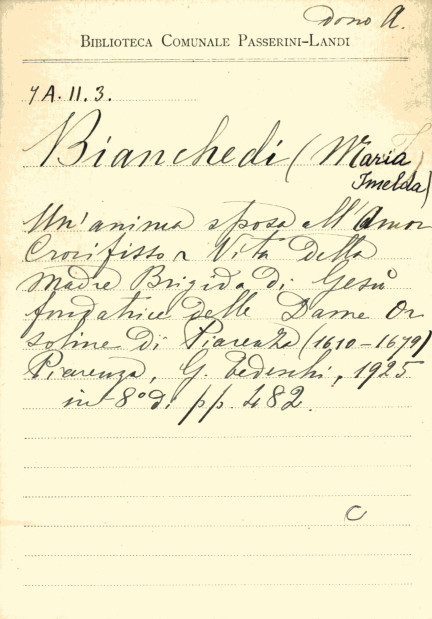 dono A.
BIBLIOTECA COMUNALE PASSERINI-LANDI
7A.II.3.
Bianchedi (Maria
Imelda)
Un'anima sposa all'Amor
Crocifisso Vita della
Madre Brigida di Gesù
fondatrice delle Dame Or
soline di Piacenza (1610-1679)
Piacenza, G. Tedeschi, 1925
in 8° di pp. 482.
C